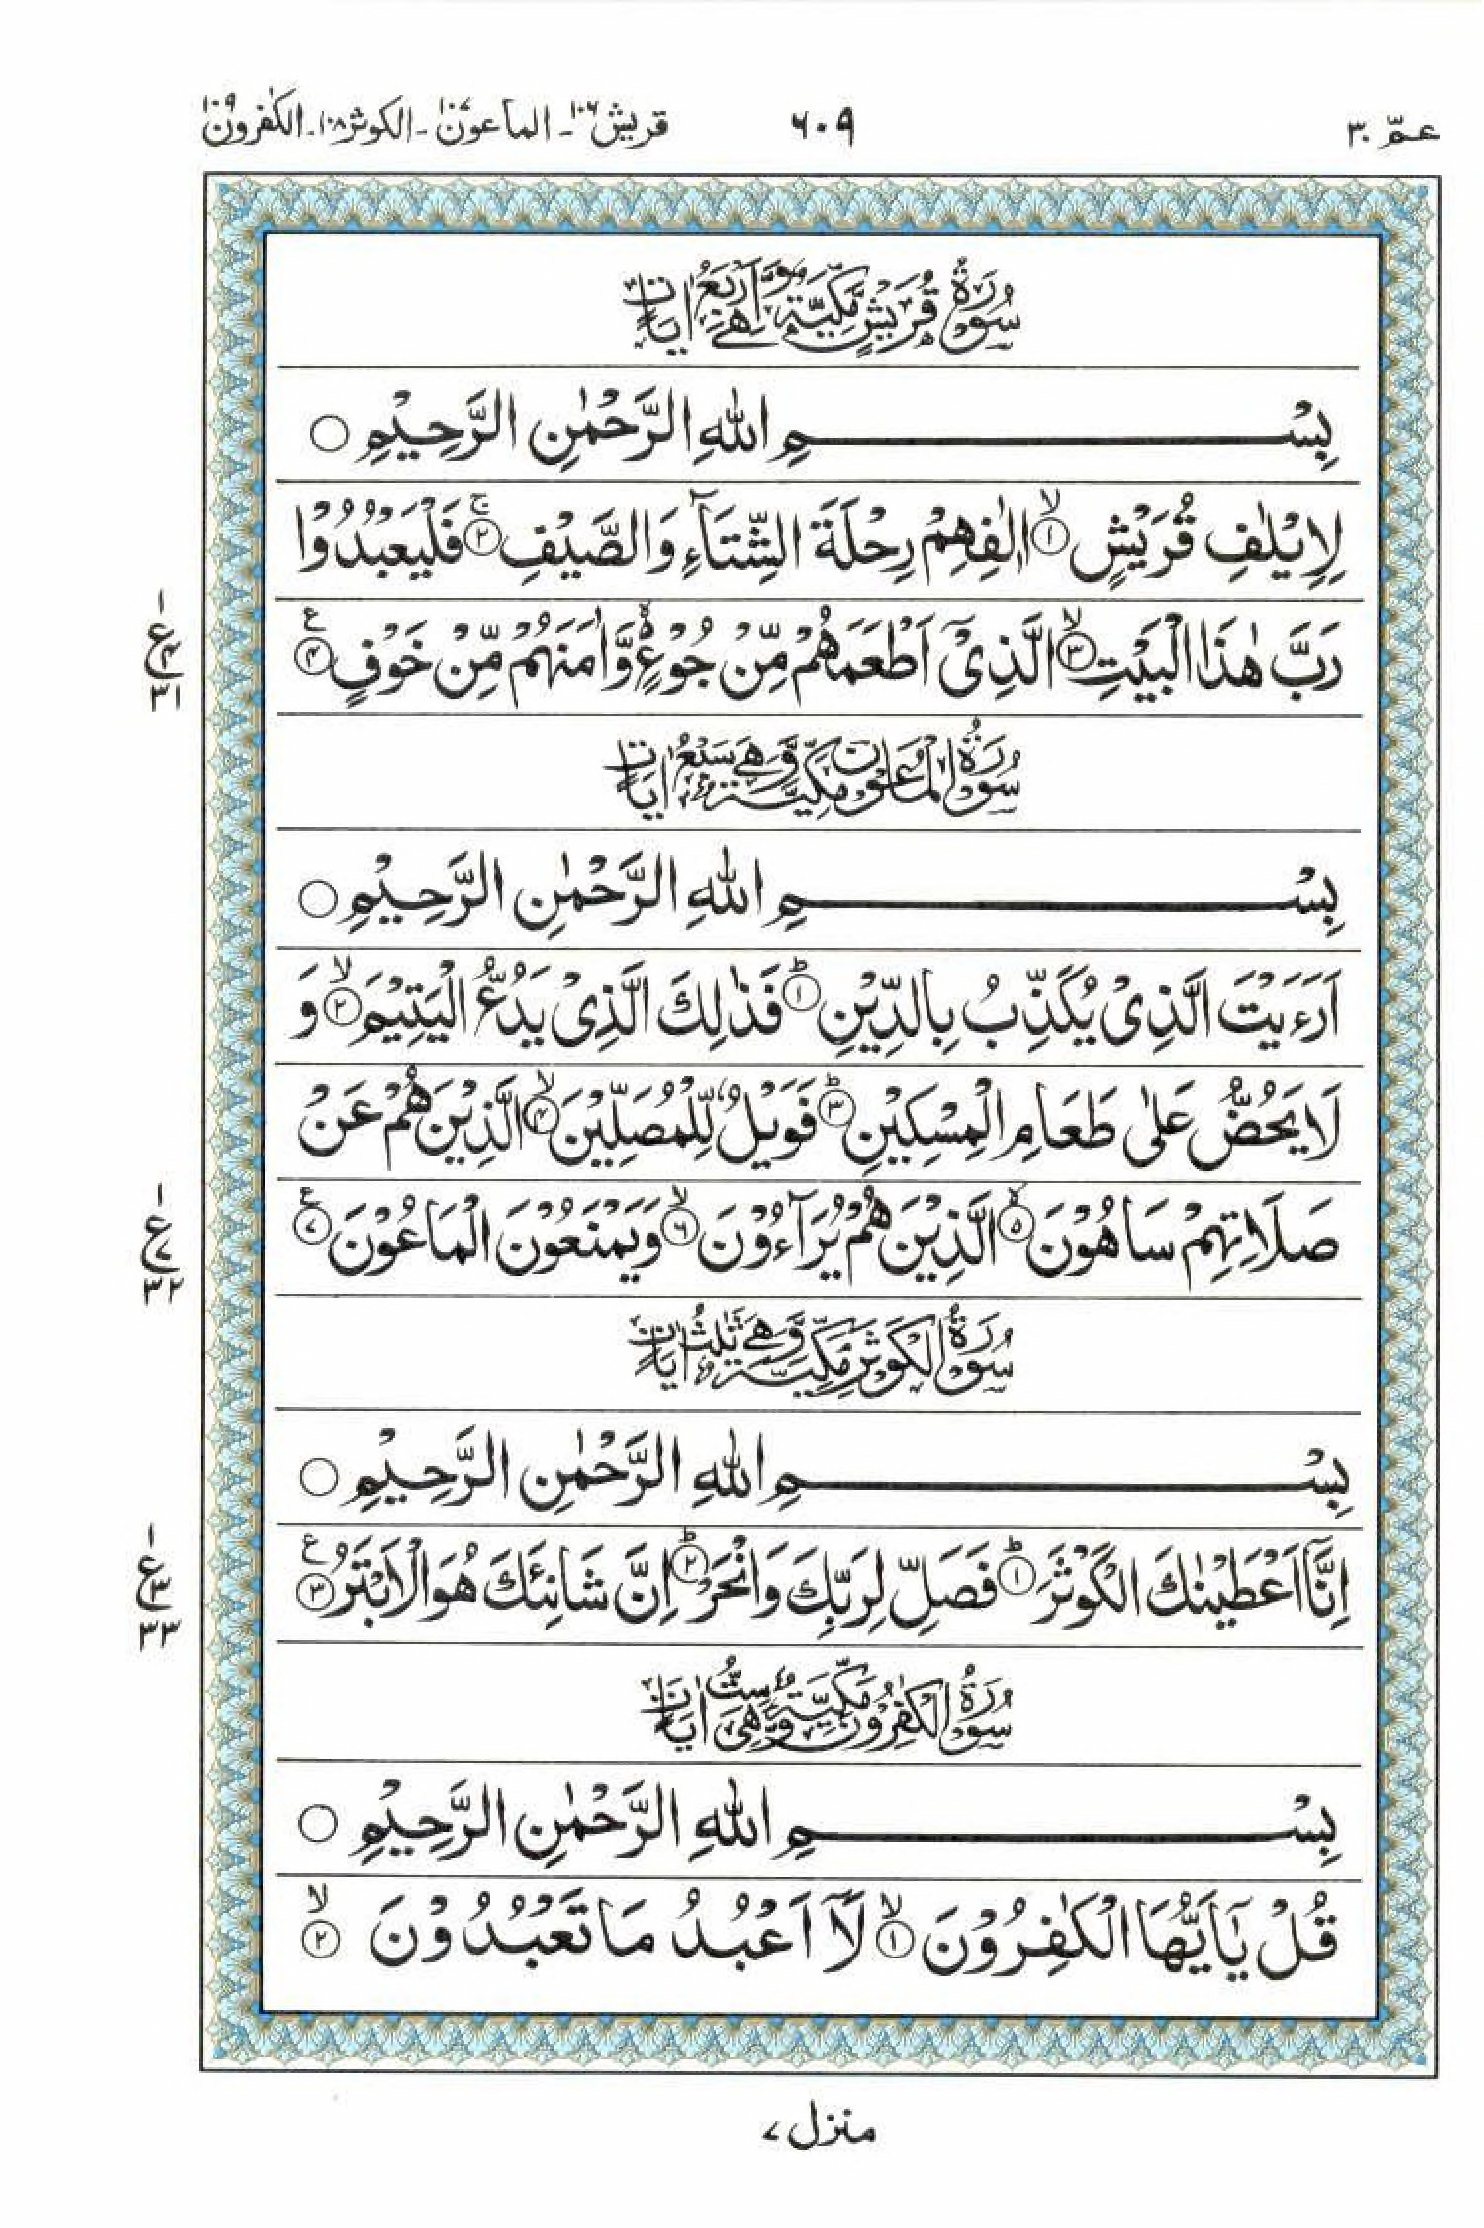 عمّ ٣٠
٦٠٩
قریش ١٠٦ - الماعون ١٠٧ - الکوثر ١٠٨ - الکٰفرون ١٠٩
سُوْرَةُ قُرَيْشٍ مَّكِّيَّةٌ وَّهِيَ اَرْبَعُ اٰيَاتٍ
بِسْمِ اللّٰهِ الرَّحْمٰنِ الرَّحِيْمِ ○
لِاِيْلٰفِ قُرَيْشٍ ۙ﴿۱﴾ اٖلٰفِهِمْ رِحْلَةَ الشِّتَآءِ وَالصَّيْفِ ۚ﴿۲﴾ فَلْيَعْبُدُوْا
رَبَّ هٰذَا الْبَيْتِ ۙ﴿۳﴾ الَّذِيْٓ اَطْعَمَهُمْ مِّنْ جُوْعٍ ۬ۙ وَّاٰمَنَهُمْ مِّنْ خَوْفٍ ﴿۴﴾ ع
١ ع ٤ ٣١
سُوْرَةُ الْمَاعُوْنِ مَكِّيَّةٌ وَّهِيَ سَبْعُ اٰيَاتٍ
بِسْمِ اللّٰهِ الرَّحْمٰنِ الرَّحِيْمِ ○
اَرَءَيْتَ الَّذِيْ يُكَذِّبُ بِالدِّيْنِ ؕ﴿۱﴾ فَذٰلِكَ الَّذِيْ يَدُعُّ الْيَتِيْمَ ۙ﴿۲﴾ وَ
لَا يَحُضُّ عَلٰى طَعَامِ الْمِسْكِيْنِ ؕ﴿۳﴾ فَوَيْلٌ لِّلْمُصَلِّيْنَ ۙ﴿۴﴾ الَّذِيْنَ هُمْ عَنْ
صَلَاتِهِمْ سَاهُوْنَ ۙ﴿۵﴾ الَّذِيْنَ هُمْ يُرَآءُوْنَ ۙ﴿۶﴾ وَيَمْنَعُوْنَ الْمَاعُوْنَ ﴿۷﴾ ع
١ ع ٧ ٣٢
سُوْرَةُ الْكَوْثَرِ مَكِّيَّةٌ وَّهِيَ ثَلٰثُ اٰيَاتٍ
بِسْمِ اللّٰهِ الرَّحْمٰنِ الرَّحِيْمِ ○
اِنَّآ اَعْطَيْنٰكَ الْكَوْثَرَ ؕ﴿۱﴾ فَصَلِّ لِرَبِّكَ وَانْحَرْ ؕ﴿۲﴾ اِنَّ شَانِئَكَ هُوَ الْاَبْتَرُ ﴿۳﴾ ع
١ ع ٣ ٣٣
سُوْرَةُ الْكٰفِرُوْنَ مَكِّيَّةٌ وَّهِيَ سِتُّ اٰيَاتٍ
بِسْمِ اللّٰهِ الرَّحْمٰنِ الرَّحِيْمِ ○
قُلْ يٰٓاَيُّهَا الْكٰفِرُوْنَ ۙ﴿۱﴾ لَآ اَعْبُدُ مَا تَعْبُدُوْنَ ۙ﴿۲﴾
منزل ٧